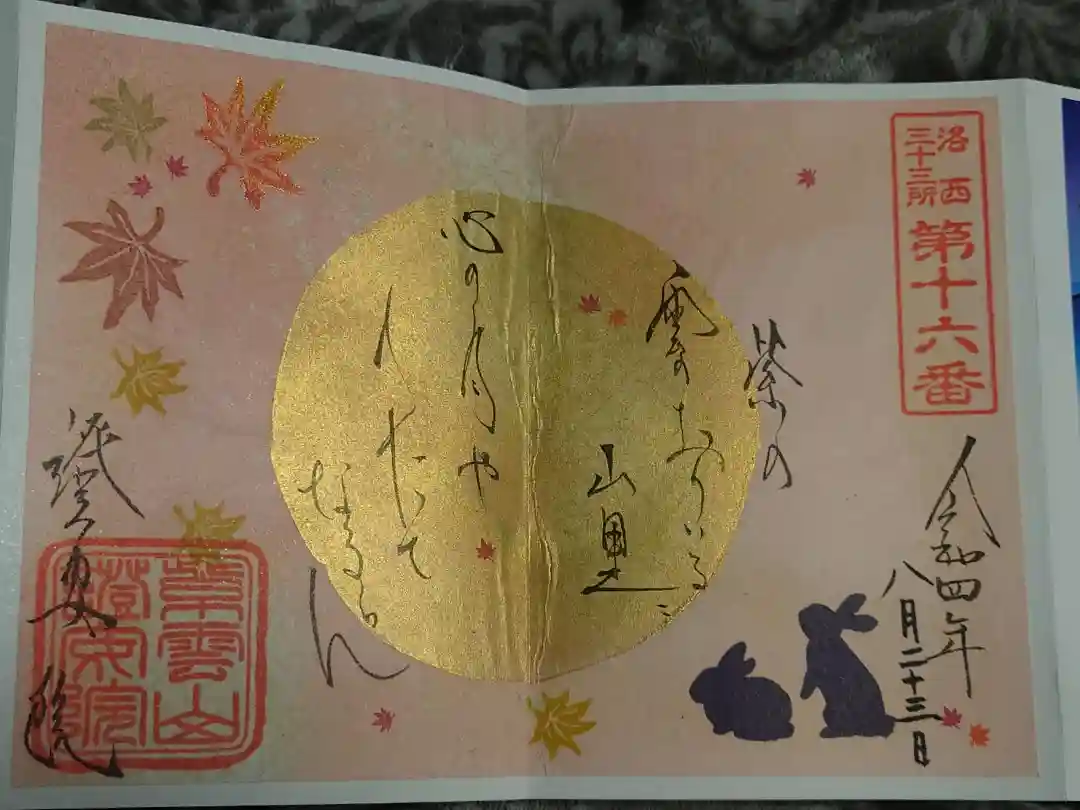 洛西
三十三所
第十六番
令和四年
八月二十三日
紫の
雲のおりいる
山里ニ
心の月や
へだて
なるらん
證安院
紫雲山
證安院